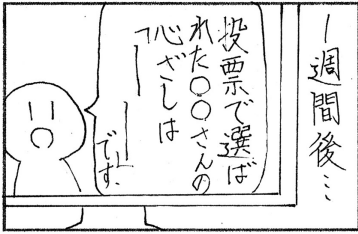 一週間後…
投票で選ば
れた○○さんの
心ざしは
「――
――」
です。